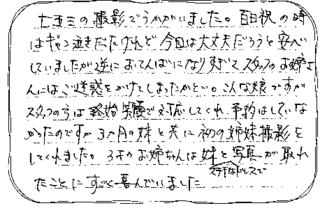 七五三の撮影でうかがいました。百日祝の時
はギャン泣きだったけれど今回は大丈夫だろうと安心
していましたが逆におてんばになりすぎてスタッフのお姉さ
んにはご迷惑をかけてしまったかと。こんな娘ですが
スタッフの方は終始笑顔で対応してくれ、予約はしていな
かったのですが3ヶ月の妹と共に初の姉妹撮影を
してくれました。3才のお姉ちゃんは妹と写真が取れ
ステキなドレスで
たことにすごく喜んでいました